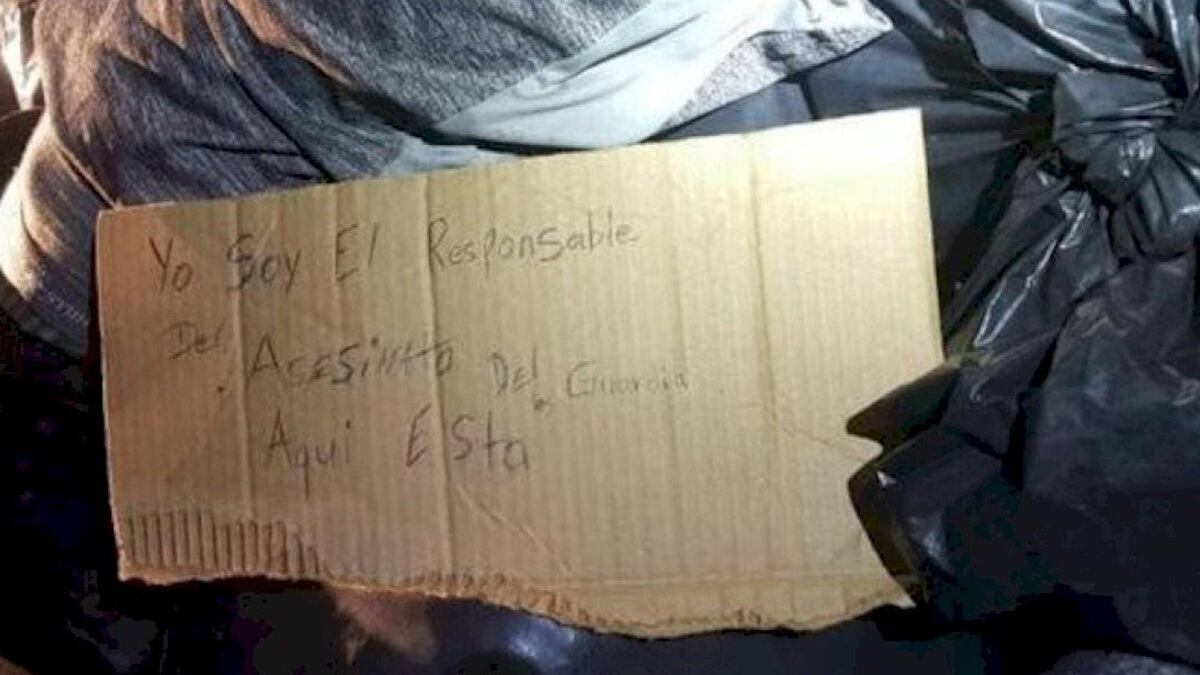 Yo Soy El Responsable
Del Asesinto Del Guardia
Aqui Esta